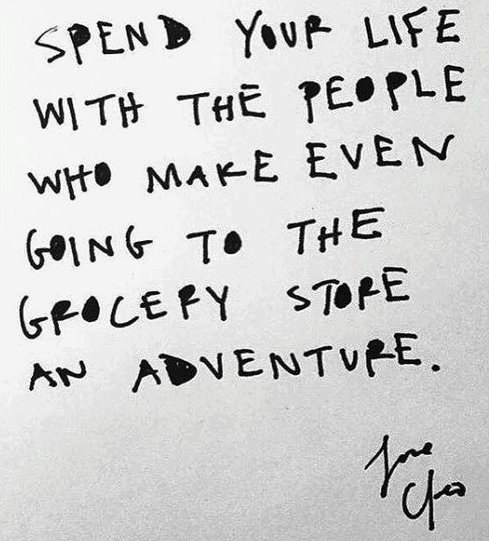 SPEND YOUR LIFE
WITH THE PEOPLE
WHO MAKE EVEN
GOING TO THE
GROCERY STORE
AN ADVENTURE.
love
Cleo